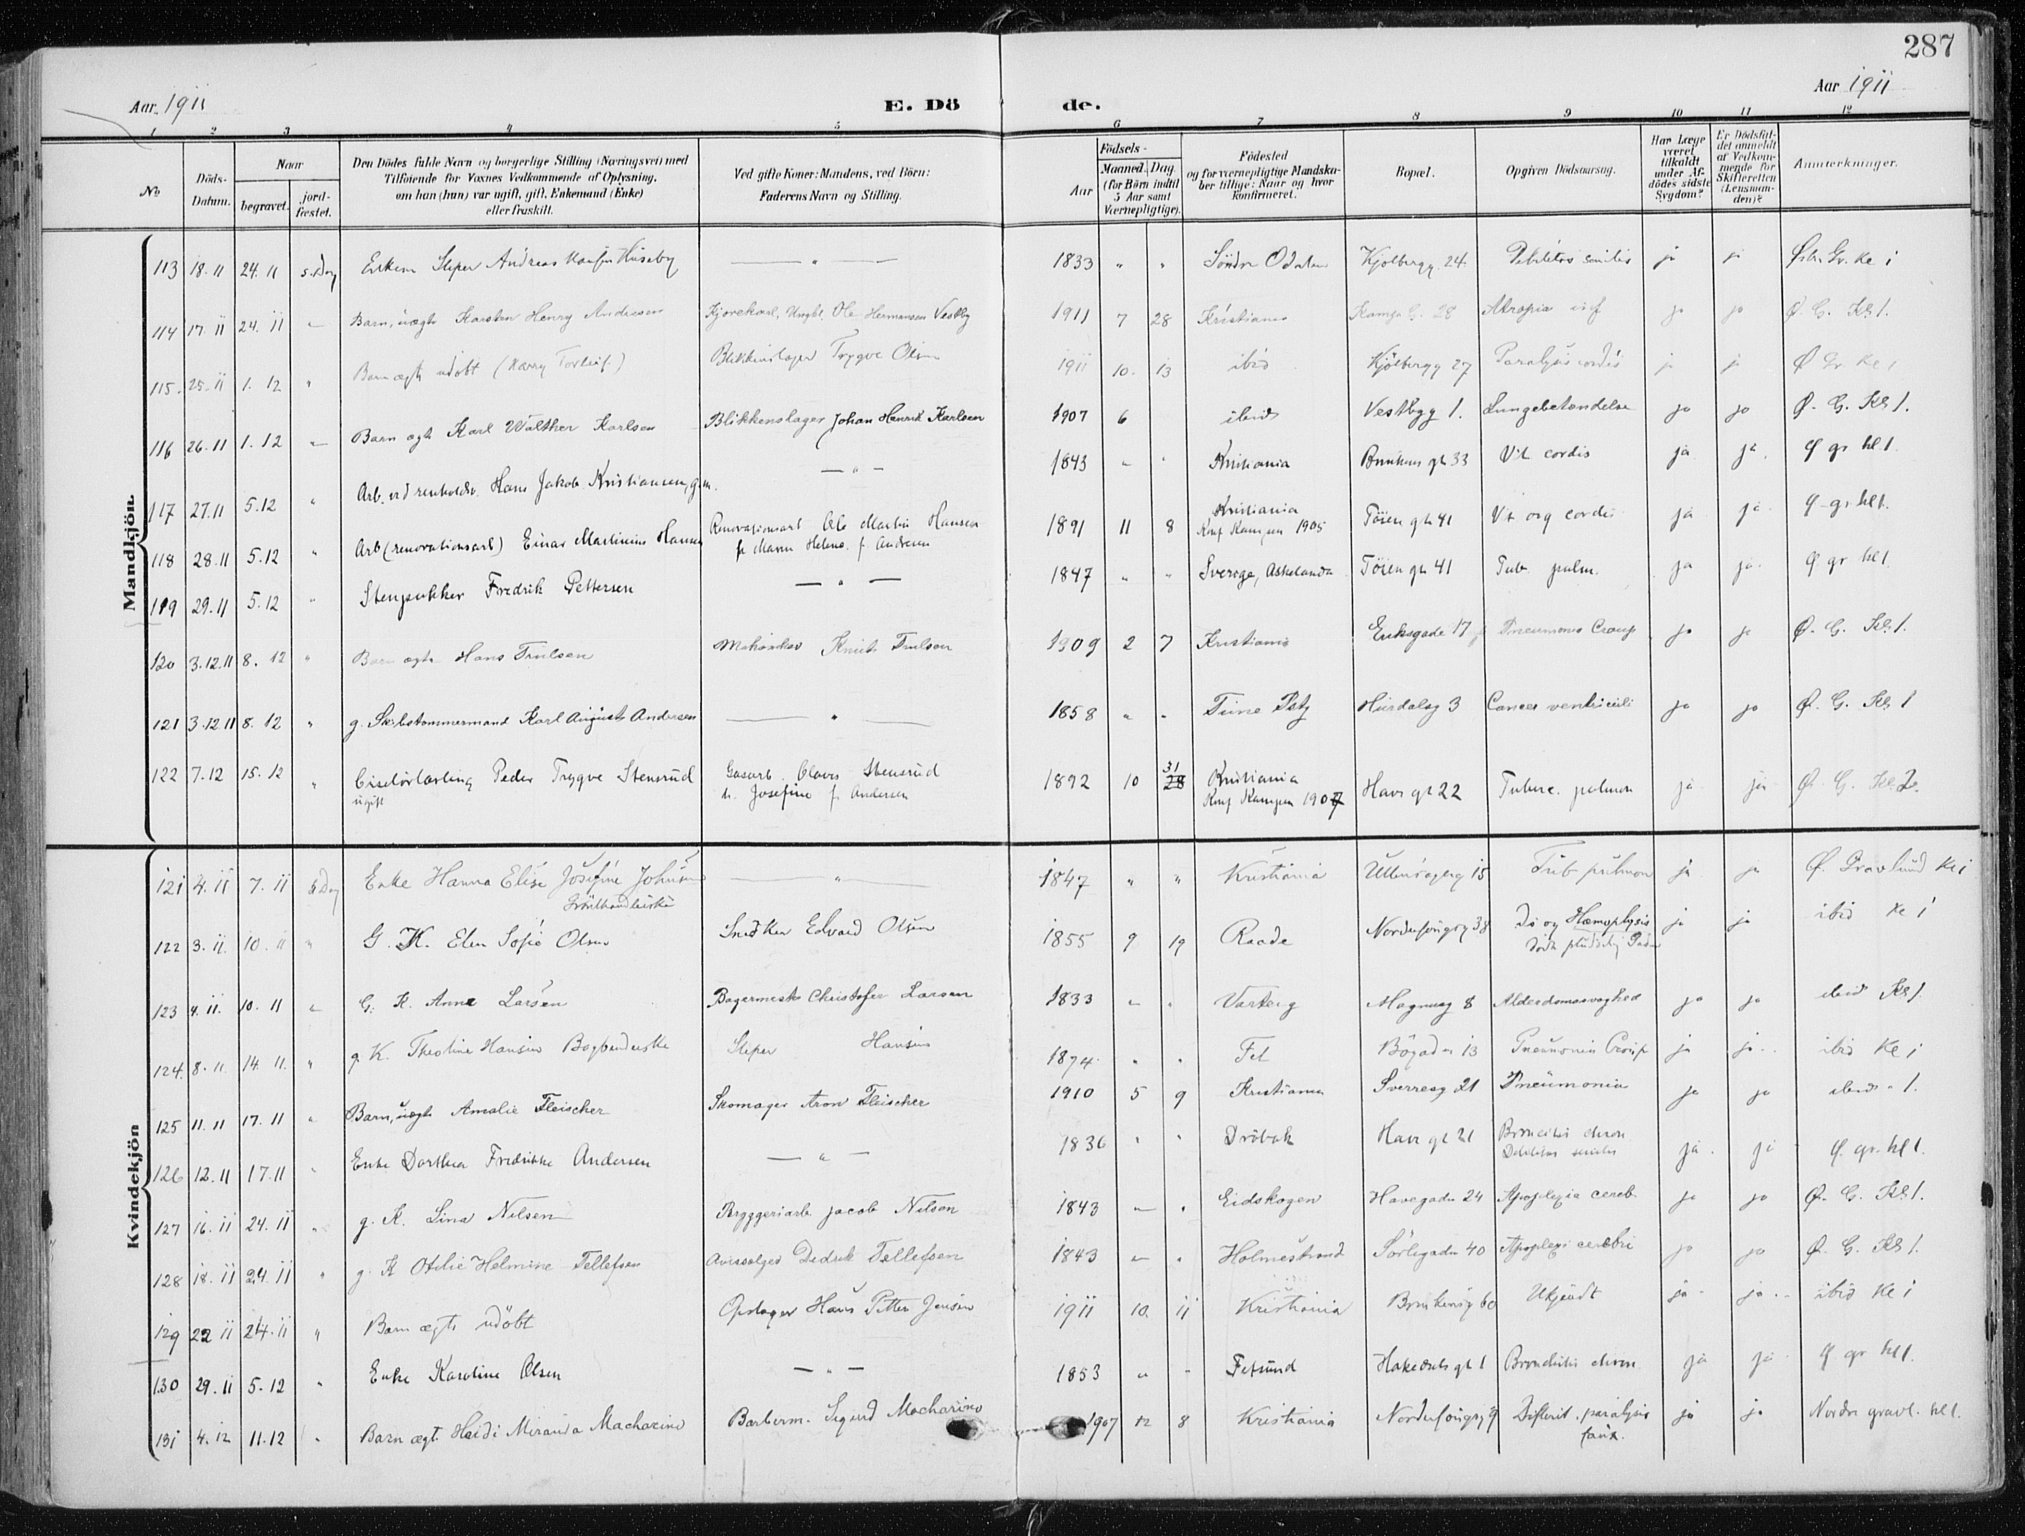 287
Aar 1911 E. Dö de. Aar 1911
1 2 3 4 5 6 7 8 9 10 11 12
No
Döds-Datum.
Naar
begravet.
jord-fæstet.
Den Dödes fulde Navn og borgerlige Stilling (Næringsvei) med
Tilföiende for Voxnes Vedkommende af Oplysning,
om han (hun) var ugift, gift, Enkemand (Enke)
eller fraskilt.
Ved gifte Koner: Mandens, ved Börn:
Faderens Navn og Stilling.
Födsels-
Aar
Maaned. Dag
(for Börn indtil
5 Aar samt
Værnepligtige).
Födested
og for værnepligtige Mandska-
ber tillige: Naar og hvor
konfirmeret.
Bopæl.
Opgiven Dödsaarsag.
Har Læge
været
tilkaldt
under Af-
dödes sidste
Sygdom?
Er Dödsfal-
det anmeldt
af Vedkom-
mende for
Skifteretten
(Lensman-
den)?
Anmærkninger.
Mandkjön
113 18.11 24.11 s. Dag Enkem Sliper Andreas Huseby — " — 1833 " " Söndre Odalen Kjölbergg. 24. Debilitas senilis ja ja Østr. Gr. Kl 1
114 17.11 24.11 " Barn, uægte Karsten Henry Andresen Kjørekarl, Ungk. Ole Hermansen Vestby 1911 7 28 Kristiania Kampeng. 28 Atropia inf ja ja Ø. G. Kl 1.
115. 25.11 1.12 " Barn ægte udöbt (Harry Torleif) Blikkenslager Trygve Olsen 1911 10. 13 ibid Kjölbergg 27 Paralysis cordis ja ja Ø Gr Kl 1
116 26.11 1.12 " Barn ægte Karl Walther Karlsen Blikkenslager Johan Henrik Karlsen 1907 6 ibid Vestbyg 1. Lungebetændelse ja ja Ø. G. Kl 1.
117 27.11 5.12 " Arb. ved renholdsv. Hans Jakob Kristiansen, g.m. — " — 1843 " " Kristiania Brinkens gt 33 Vit cordis ja ja. Ø gr kl 1.
118 28.11 5.12 " Arb (renovationsarb) Einar Martinius Hansen Renovationsarb Ole Martin Hansen
fr Maren Helene f. Andresen 1891 11 8 Kristiania
Knf Kampen 1905 Töien gt 41 Vit org cordis ja ja. Ø gr kl 1.
119 29.11 5.12 " Stenpukker Fredrik Pettersen — " — 1847 " " Sverige, Askelanda Töien gt 41 Tub. pulm. ja ja. Ø gr kl 1.
120 3.12.11 8.12 " Barn ægte Hans Trulsen Knut Trulsen 1909 2 7 Kristiania Eriksgade 17 Pneumonia Croup ja ja Ø. G. Kl. 1.
121 3.12 11 8.12 " g. Skibstømmermand Karl August Andersen — " — 1858 " " Tune Pstg Hurdalsg 3 Cancer ventriculi ja ja Ø. G. Kl 1
122 7.12 15.12 " Ciselörlærling Peder Trygve Stensrud
ugift Gasarb. Olaves Stensrud
h. Josefine f. Andersen 1892 10 31 28 Kristiania
Knf Kampen 1907 Havre gt 22 Tuberc. pulmon ja ja Ø. G. Kl 2.
Kvindekjön
121 4.11 7.11 s. Dag Enke Hanna Elise Josefine Johnsen
Grönthandlerske — " — 1847 " " Kristiania Ullensagerg 15 Tub pulmon ja ja Ø. Gravlund Kl 1
122 3.11. 10.11 " G. K. Elen Sofie Olsen Snedker Edvard Olsen 1855 9 19 Raade Norderhougsg 38 Ds og Hæmoplysis
Död pludselig ja ja ibid Kl 1
123 4.11. 10.11 " G. K. Anne Larsen Bagermester Christofer Larsen 1833 " " Varteig Magnusg 8 Alderdomssvaghed ja ja ibid Kl 1.
124. 8.11. 14.11. " g. K. Theoline Hansen Bogbinderske Sliper Hansen 1874 " " Fet Bögaden 13 Pneumonia Croup ja ja.. ibid Kl 1
125 11.11 17.11 " Barn, uægte Amalie Fleischer Skomager Aron Fleischer 1910 5 9 Kristiania Sverresg 21 Pneumonia ja ja ibid " 1.
126 12.11 17.11 " Enke Dorthea Fredrikke Andersen — " — 1836 " " Dröbak Havre gt 21 Broncitis chron
Debilitas senilis ja. ja Ø. gr. kl 1.
127 16.11 24.11 " g. K. Lina Nilsen Bryggeriarb Jacob Nilsen 1843 " " Eidskogen Havegaden 24 Apoplexia cereb. ja ja Ø. G. Kl 1.
128 18.11 24.11 " g. K Otilie Helmine Tellefsen Avissælger Didrik Tellefsen 1843 " " Holmestrand Sörligaden 40 Apoplexi cerebri ja ja Ø. G. Kl 1.
129 22 11 24.11 " Barn ægte udöbt Opslager Hans Petter Jensen 1911 10. 11 Kristiania Brinkensg 60 Ukjendt ja. ja.. ibid Kl 1
130 29.11 5.12 " Enke Karoline Olsen — " — 1853 " " Fetsund Hakedals gt 1 Bronchitis chron. ja ja Ø gr kl 1.
131 4.12 11.12 " Barn ægt. Heidi Miranda Macharino Barberm. Sigurd Macharino 1907 12 8 Kristiania Norderhougsg 9 Difterit. paralysis
faux. ja ja Nordre gravl. kl 1.